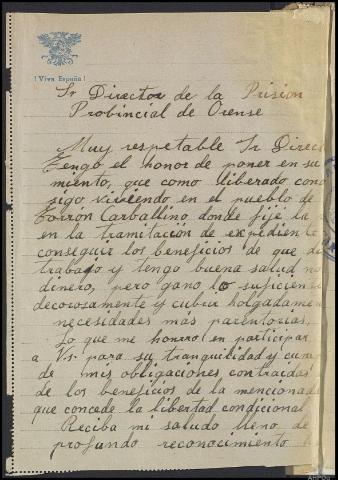 ¡Viva España!
Sr Director de la Prision
Provincial de Orense
Muy respetable Sr Direc
Tengo el honor de poner en su
miento, que como liberado con
sigo viviendo en el pueblo de
Carballino, donde fijé la
en la tramitación de expedien
conseguir los beneficios de que di
trabajo y tengo buena salud no
dinero, pero gano lo suficien
decorosamente y cubrir holgadamen
necesidades más parentorias,
Lo que me honrro en participar
a Vs. para su tranquilidad y cum
de mis obligaciones contraidas
de los beneficios de la mencionad
que concede la libertad condicional
Reciba mi saludo lleno de
profundo reconocimiento